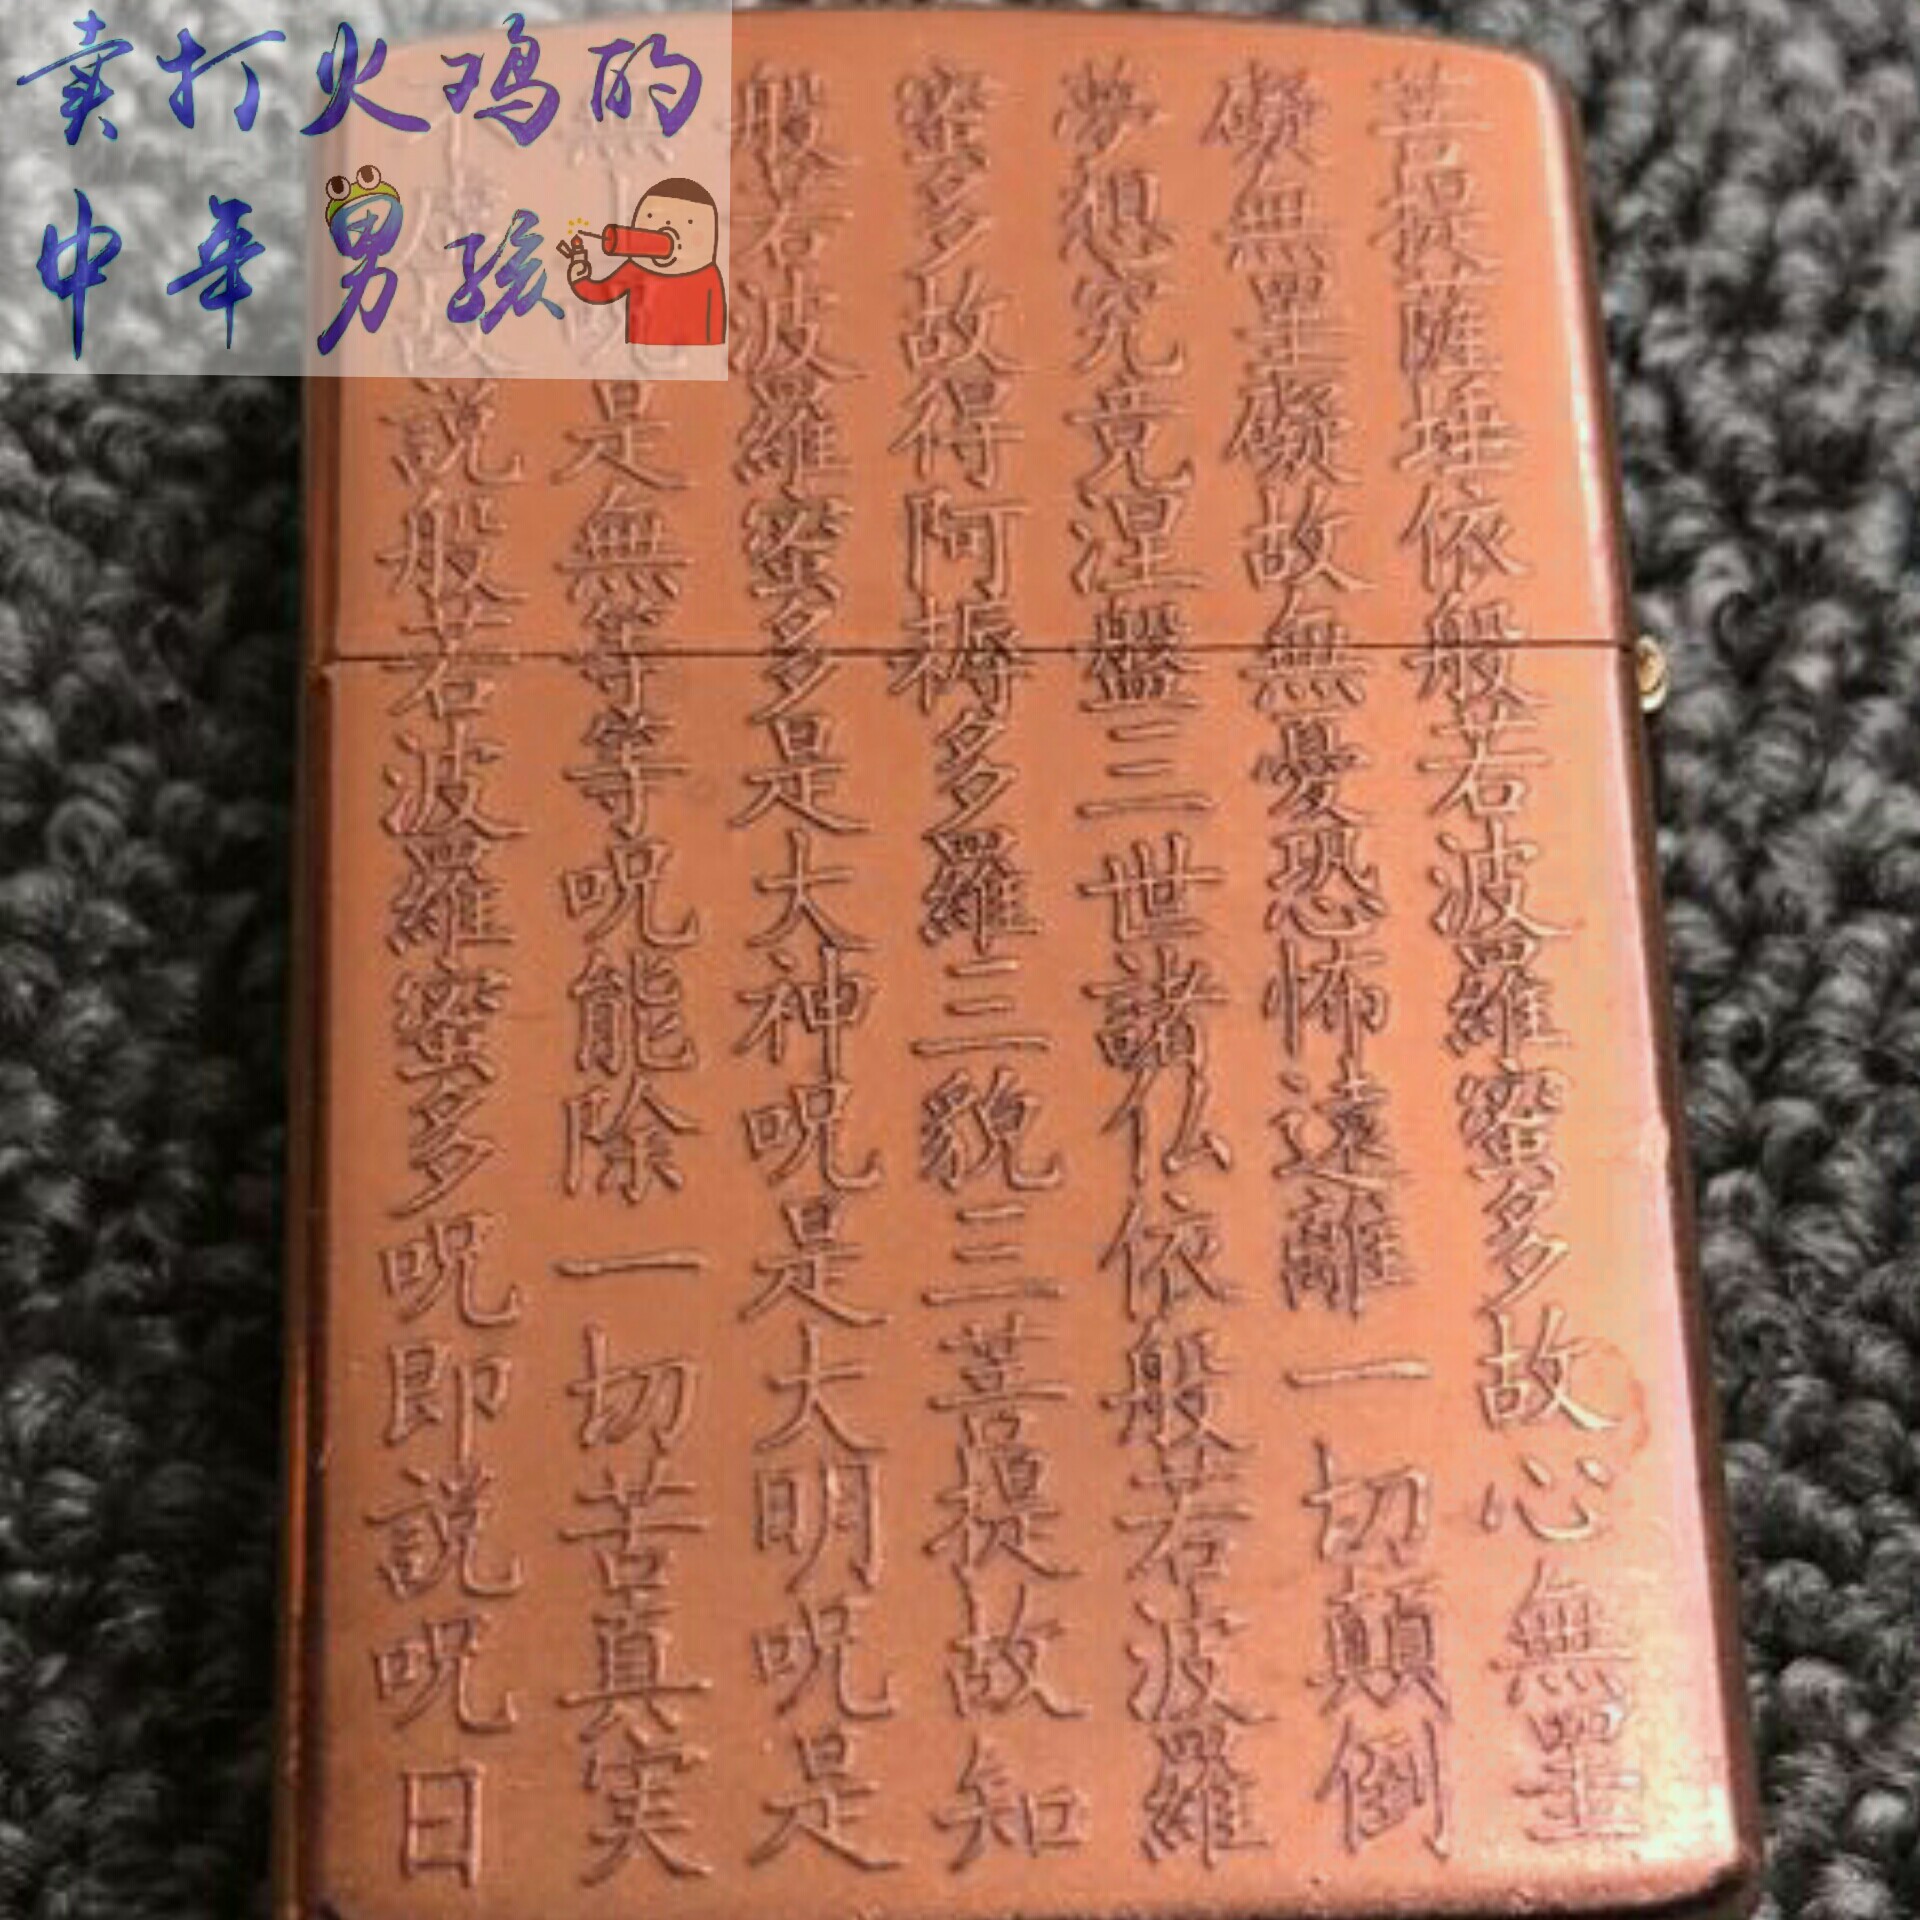 卖打火鸡的
中年男孩
菩提薩埵依般若波羅蜜多故心無罣
礙無罣礙故無憂恐怖遠離一切顛倒
夢想究竟涅盤三世諸仏依般若波羅
蜜多故得阿耨多羅三貌三菩提故知
般若波羅蜜多是大神呪是大明呪是
無上呪是無等等呪能除一切苦真実
不虚故説般若波羅蜜多呪即説呪日